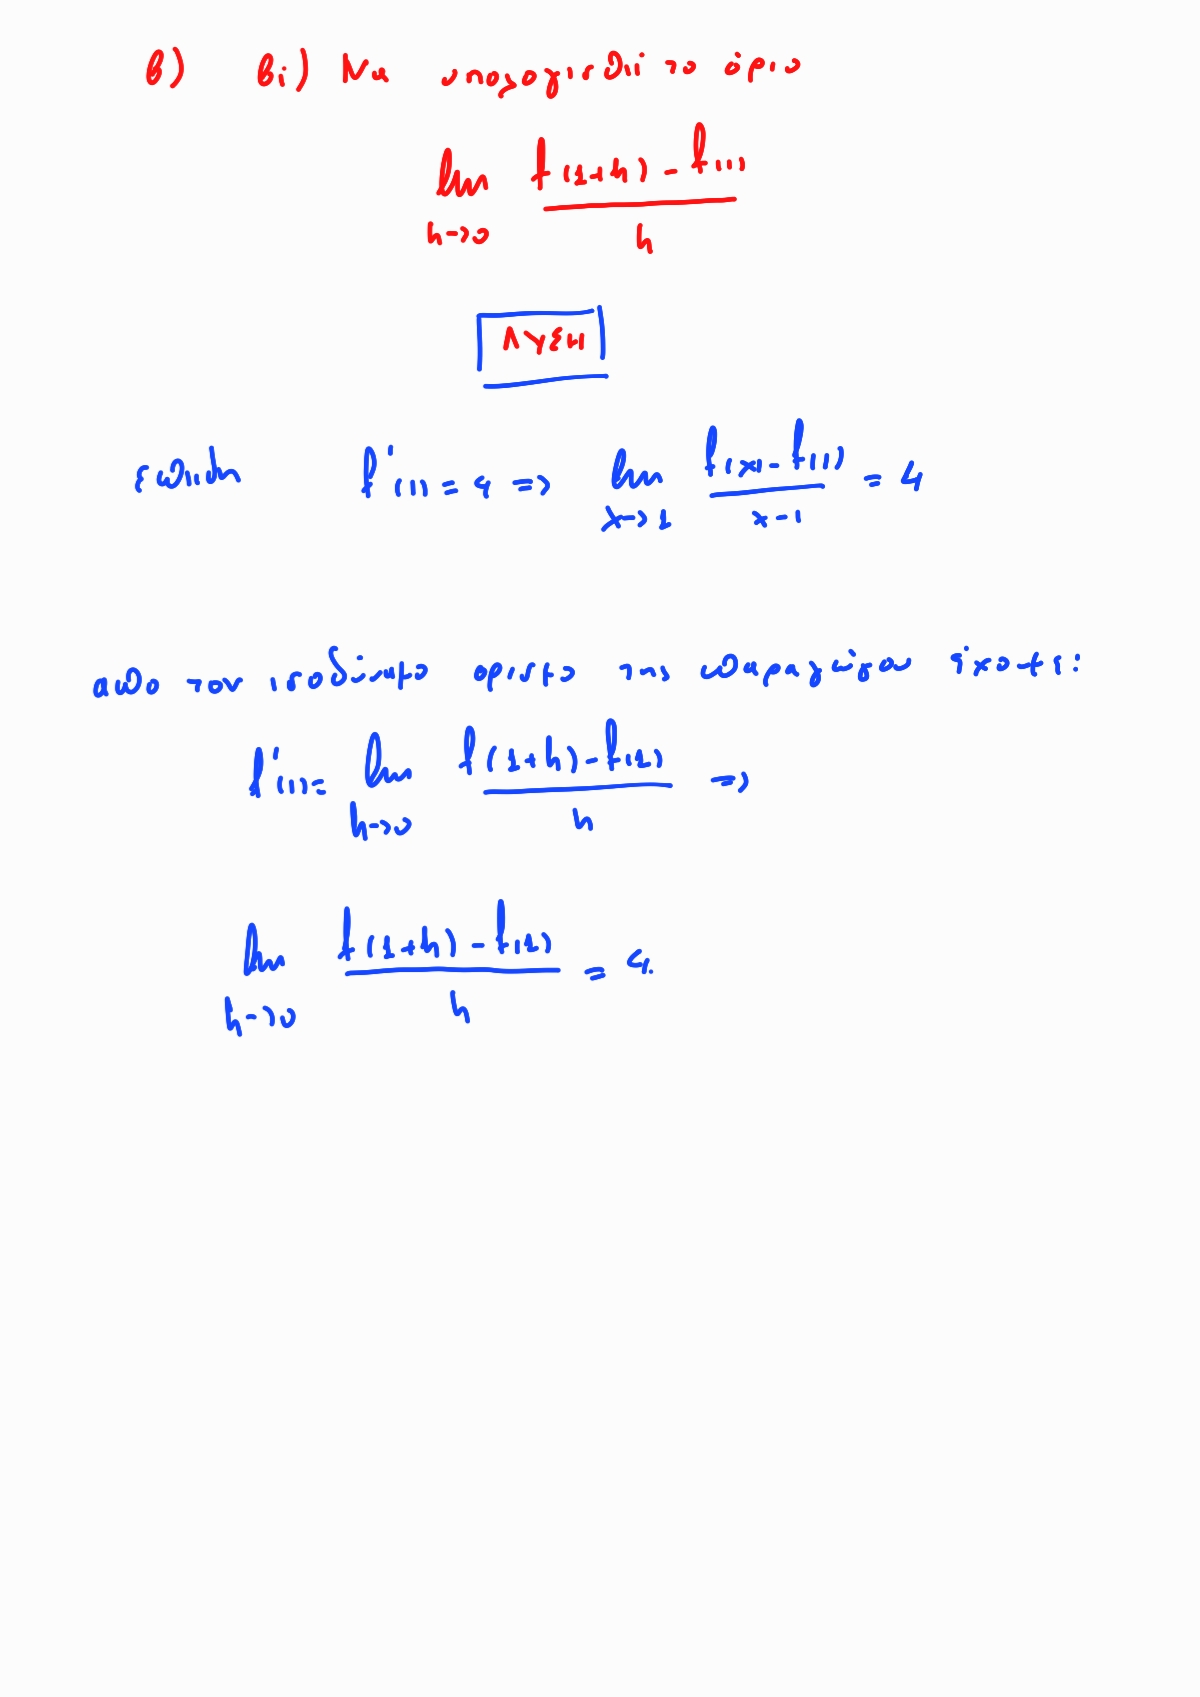 β) βi) Να υπολογισθεί το όριο
lim f(1+h) - f(1)
h->0 h
ΛΥΣΗ
επειδή f'(1) = 4 => lim f(x) - f(1) = 4
x->1 x-1
απο τον ισοδύναμο ορισμο της παραγώγου έχουμε:
f'(1) = lim f(1+h) - f(1) =>
h->0 h
lim f(1+h) - f(1) = 4.
h->0 h